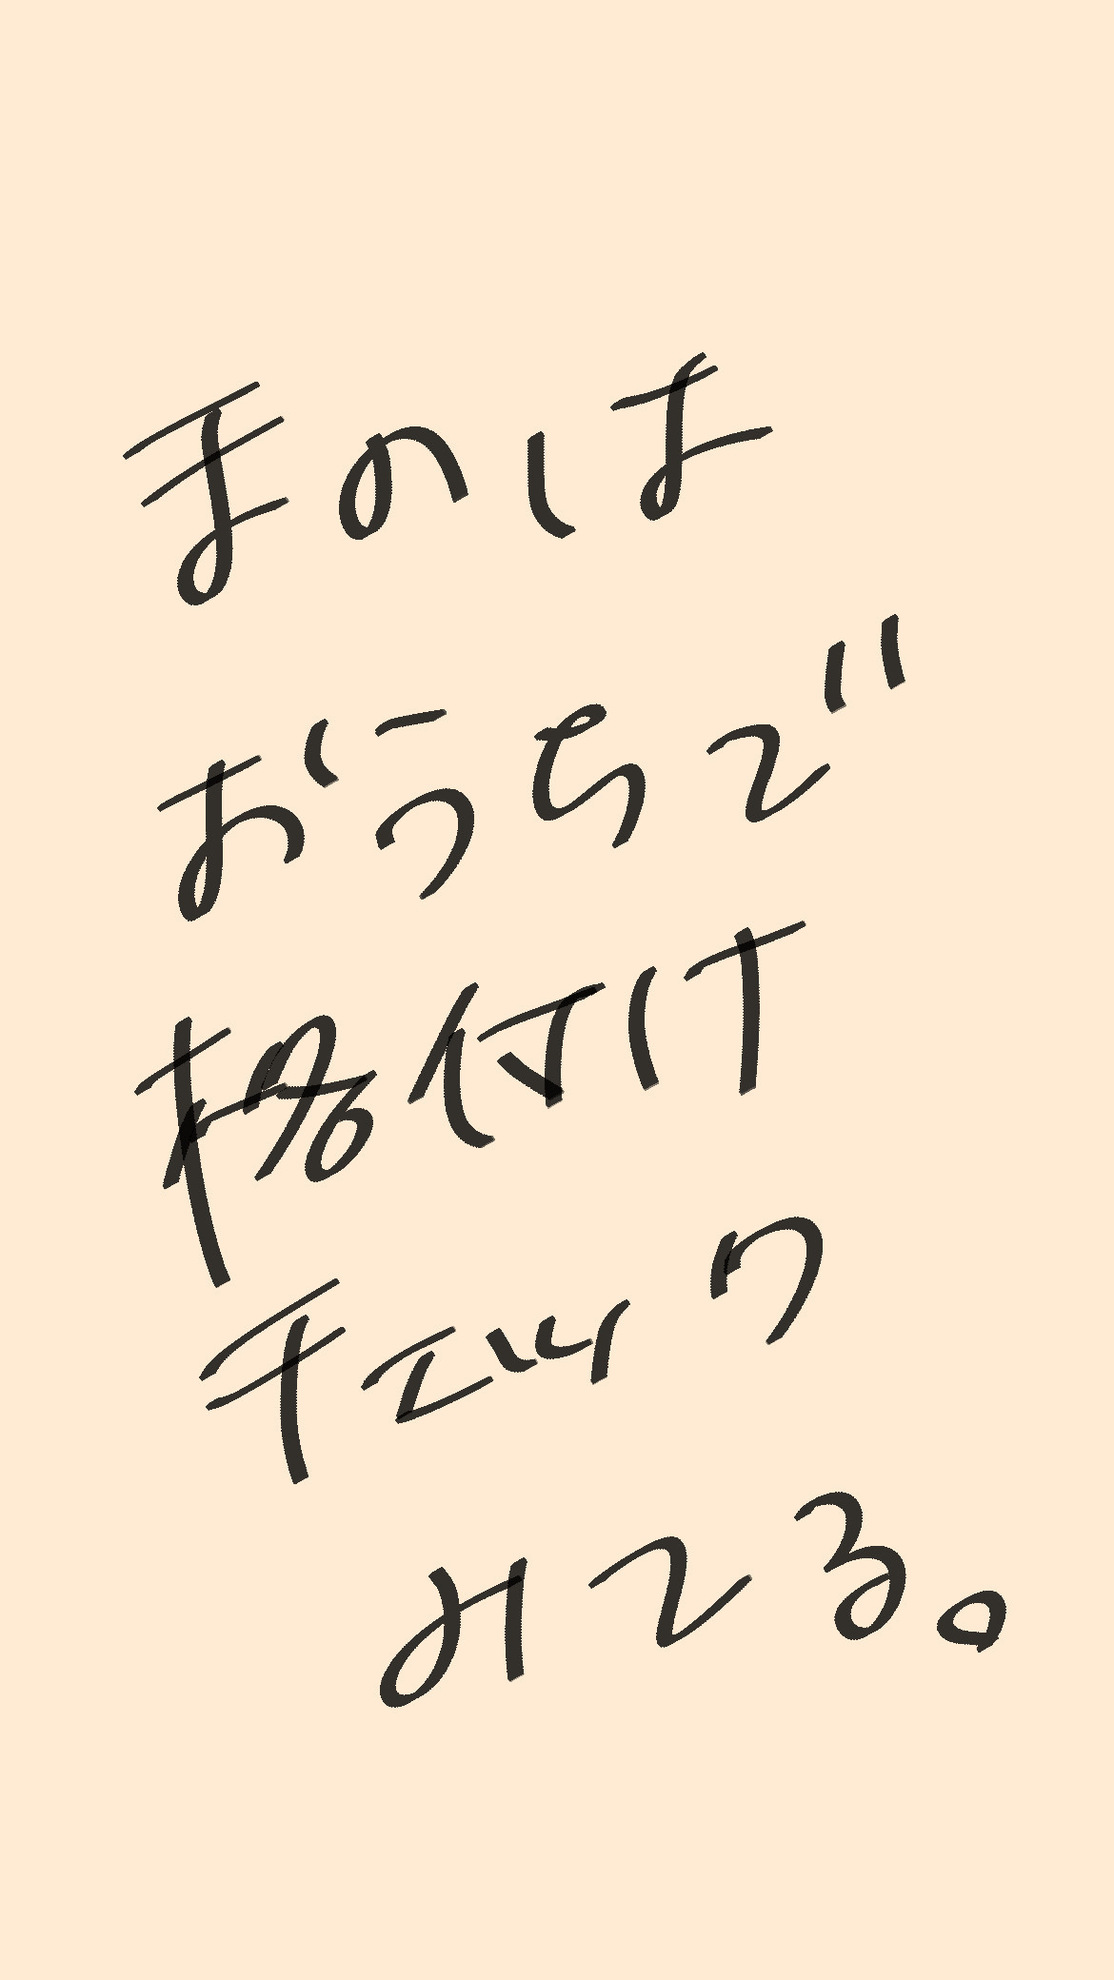 まのは
おうちで
格付け
チェック
みてる。